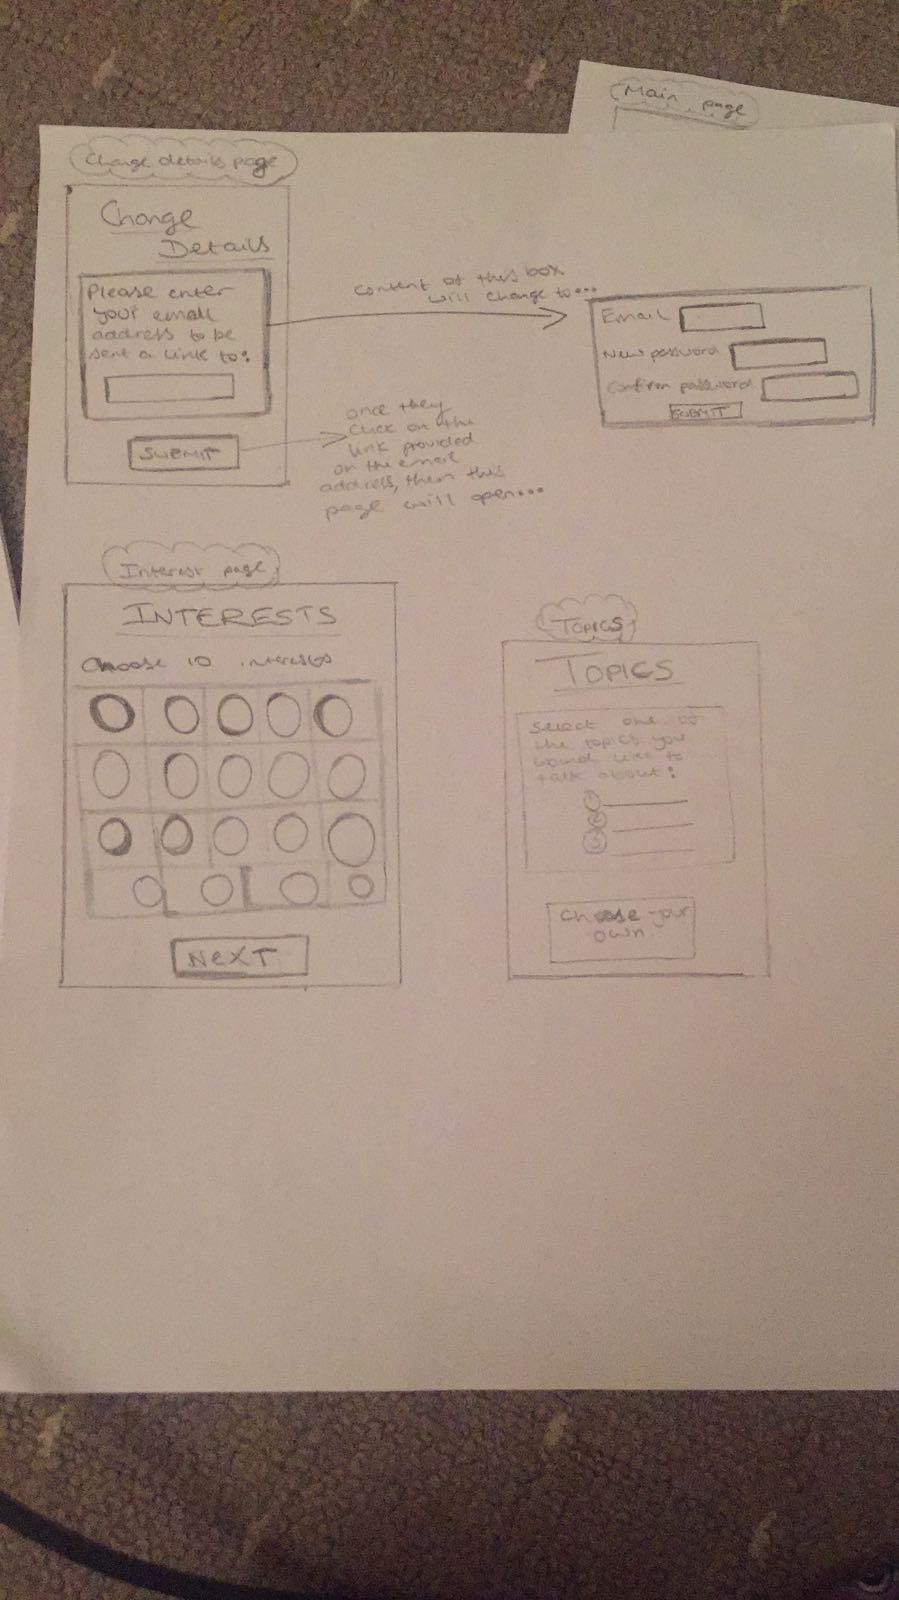 Main page
Change details page
Change
Details
Please enter
your email
address to be
sent a link to:
SUBMIT
content of this box
will change to...
Email
New password
Confirm password
SUBMIT
once they
click on the
link provided
on the email
address, then this
page will open...
Interest page
INTERESTS
Choose 10 interests
NEXT
TOPICS
TOPICS
Select one of
the topics you
would like to
talk about:
1
2
3
Choose your
own